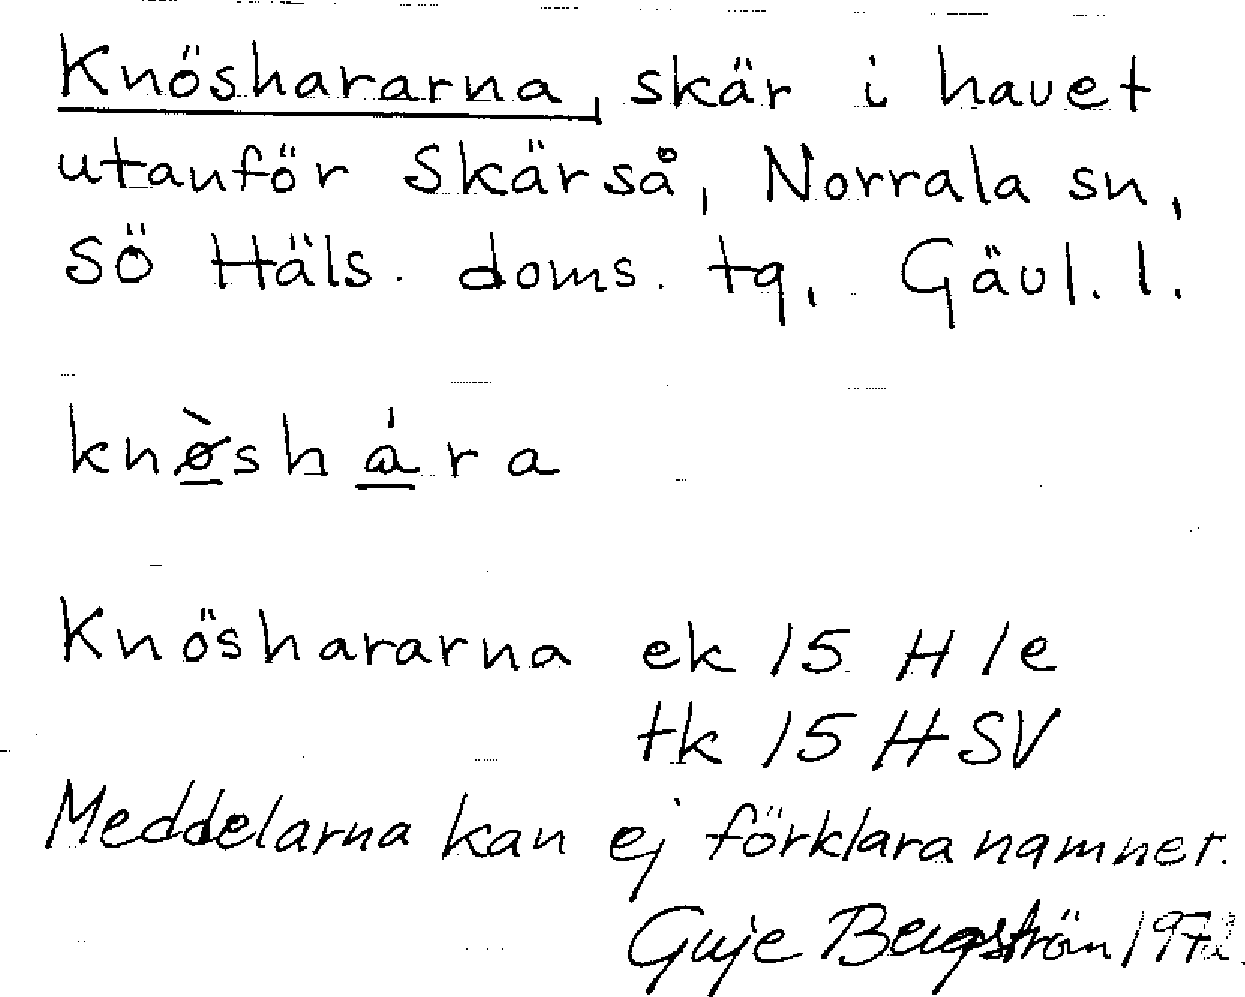 Knöshararna, skär i havet
utanför Skärså, Norrala sn,
sö Häls. doms. tg, Gävl. l.
knø̀shára
Knöshararna ek 15 H 1e
tk 15 H SV
Meddelarna kan ej förklara namnet.
Guje Bergström